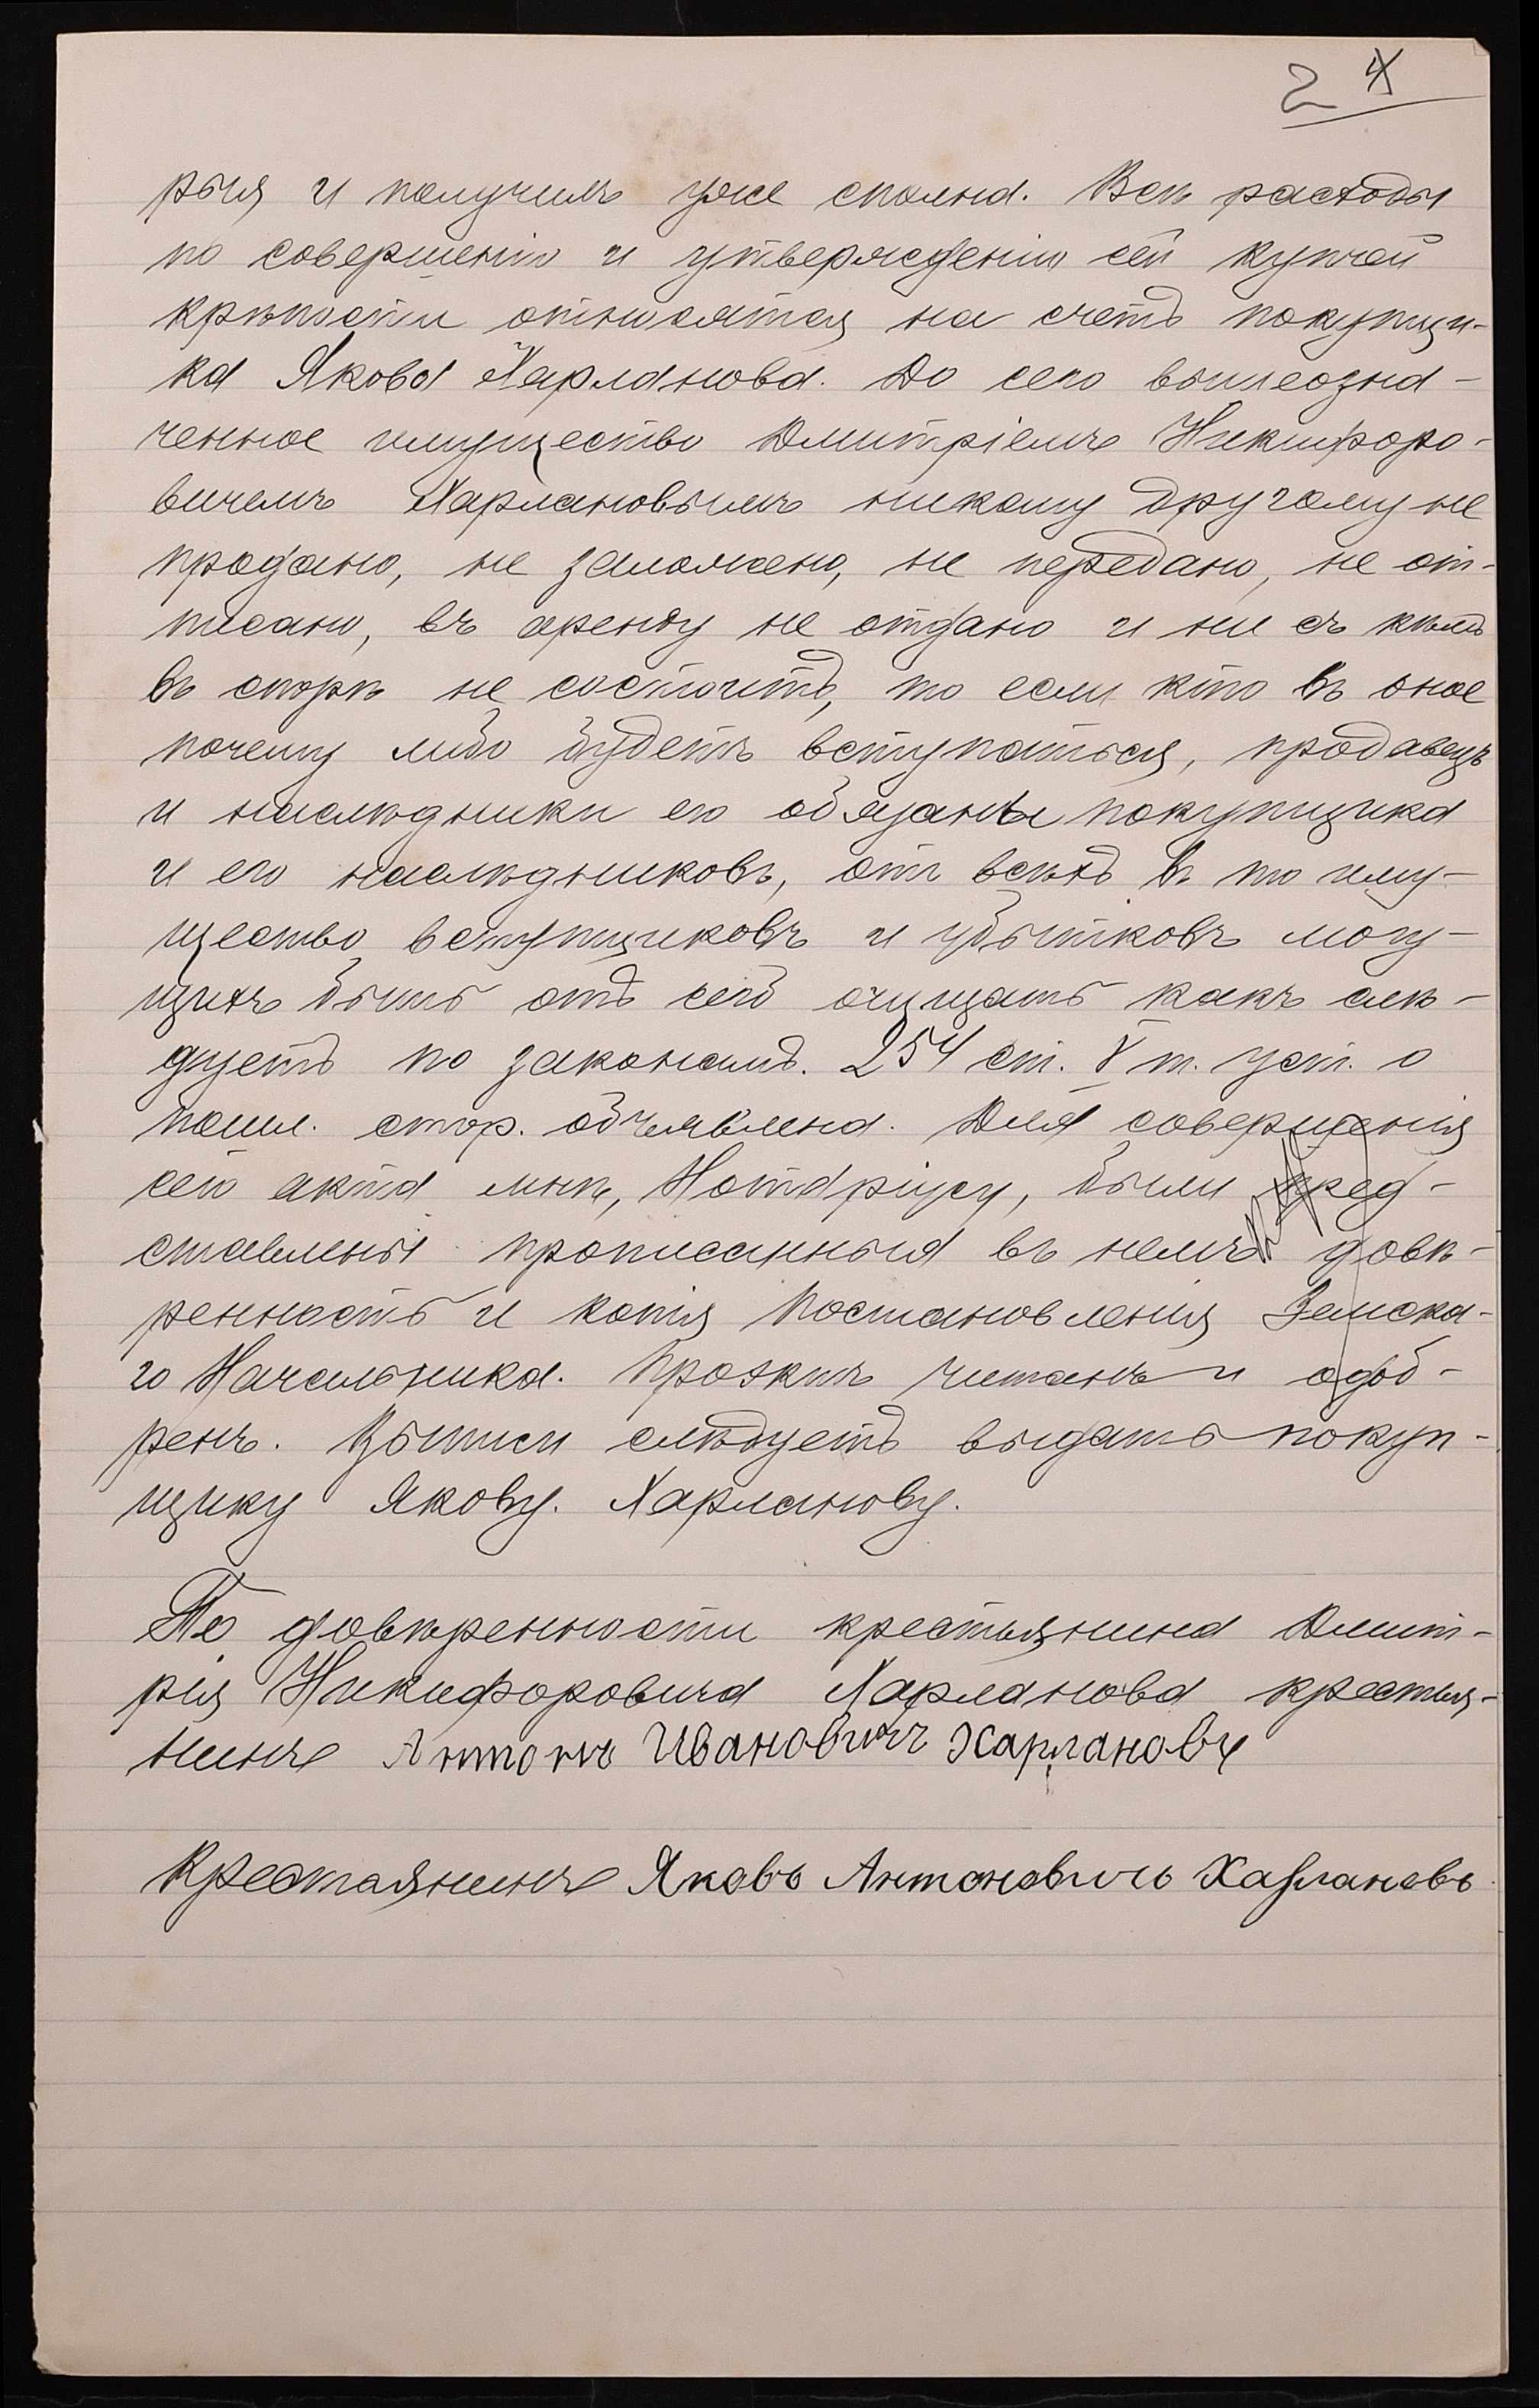 2 4
рыя и получилъ уже сполна. Всѣ расходы
по совершенію и утвержденію сей купчей
крѣпости относятся на счетъ покупщи-
ка Якова Харланова. До сего вышеозна-
ченное имущество Дмитріемъ Никифоро-
вичемъ Харлановымъ никому другому не
продано, не заложено, не передано, не от-
писано, въ аренду не отдано и ни съ кѣмъ
въ спорѣ не состоитъ, то если кто въ оное
почему либо будетъ вступаться, продавецъ
и наслѣдники его обязаны покупщика
и его наслѣдниковъ, отъ всѣхъ въ то иму-
щество вступщиковъ и убытковъ могу-
щихъ быть отъ сего очищать какъ слѣ-
дуетъ по законамъ. 254 ст. V т. уст. о
пошл. стор. объявлена. Для совершенія
сего акта мнѣ, Нотаріусу, были пред-
ставлены прописанныя въ немъ довѣ-
ренность и копія постановленія Земска-
го Начальника. Проэктъ читанъ и одоб-
ренъ. Выпись слѣдуетъ выдать покуп-
щику Якову. Харланову.
По довѣренности крестьянина Дмит-
рія Никифоровича Харланова крестья-
нинъ Антонъ Ивановичъ Харлановъ
Крестьянинъ Яковъ Антоновичъ Харлановъ